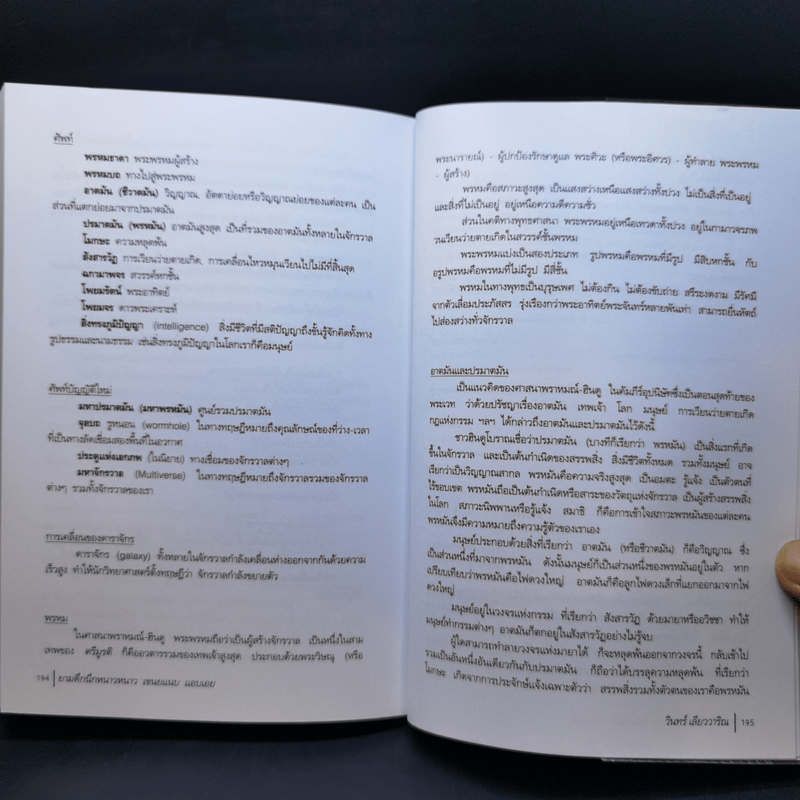 ศัพท์
พรหมธาดา พระพรหมผู้สร้าง
พรหมบถ ทางไปสู่พระพรหม
อาตมัน (ชีวาตมัน) วิญญาณ, อัตตาย่อยหรือวิญญาณย่อยของแต่ละคน เป็น
ส่วนที่แตกย่อยมาจากปรมาตมัน
ปรมาตมัน (พรหมัน) อาตมันสูงสุด เป็นที่รวมของอาตมันทั้งหลายในจักรวาล
โมกษะ ความหลุดพ้น
สังสารวัฏ การเวียนว่ายตายเกิด, การเคลื่อนไหวหมุนเวียนไปไม่มีที่สิ้นสุด
ฉกามาพจร สวรรค์หกชั้น
โพยมรัตน์ พระอาทิตย์
โพยมจร ดาวพระเคราะห์
สิ่งทรงภูมิปัญญา (intelligence) สิ่งมีชีวิตที่มีสติปัญญาถึงขั้นรู้จักคิดทั้งทาง
รูปธรรมและนามธรรม เช่นสิ่งทรงภูมิปัญญาในโลกเราก็คือมนุษย์
ศัพท์บัญญัติใหม่
มหาปรมาตมัน (มหาพรหมัน) ศูนย์รวมปรมาตมัน
จุตบถ รูหนอน (wormhole) ในทางทฤษฎีหมายถึงคุณลักษณ์ของที่ว่าง-เวลา
ที่เป็นทางลัดเชื่อมสองพื้นที่ในอวกาศ
ประตูแห่งเอกภพ (ในนิยาย) ทางเชื่อมของจักรวาลต่างๆ
มหาจักรวาล (Multiverse) ในทางทฤษฎีหมายถึงจักรวาลรวมของจักรวาล
ต่างๆ รวมทั้งจักรวาลของเรา
การเคลื่อนของดาราจักร
ดาราจักร (galaxy) ทั้งหลายในจักรวาลกำลังเคลื่อนห่างออกจากกันด้วยความ
เร็วสูง ทำให้นักวิทยาศาสตร์ตั้งทฤษฎีว่า จักรวาลกำลังขยายตัว
พรหม
ในศาสนาพราหมณ์-ฮินดู พระพรหมถือว่าเป็นผู้สร้างจักรวาล เป็นหนึ่งในสาม
เทพของ ตรีมูรติ ก็คืออวตารรวมของเทพเจ้าสูงสุด ประกอบด้วยพระวิษณุ (หรือ
194 | ยามดึกนึกหนาวหนาว เขนยแนบ แอบเอย
พระนารายณ์) - ผู้ปกป้องรักษาดูแล พระศิวะ (หรือพระอิศวร) - ผู้ทำลาย พระพรหม
- ผู้สร้าง)
พรหมคือสภาวะสูงสุด เป็นแสงสว่างเหนือแสงสว่างทั้งปวง ไม่เป็นสิ่งที่เป็นอยู่
และสิ่งที่ไม่เป็นอยู่ อยู่เหนือความดีความชั่ว
ส่วนในคติทางพุทธศาสนา พระพรหมอยู่เหนือเทวดาทั้งปวง อยู่ในกามาวจรภพ
วนเวียนว่ายตายเกิดในสวรรค์ชั้นพรหม
พระพรหมแบ่งเป็นสองประเภท รูปพรหมคือพรหมที่มีรูป มีสิบหกชั้น กับ
อรูปพรหมคือพรหมที่ไม่มีรูป มีสี่ชั้น
พรหมในทางพุทธเป็นบุรุษเพศ ไม่ต้องกิน ไม่ต้องขับถ่าย สรีระงดงาม มีรัศมี
จากตัวเลื่อมประภัสสร รุ่งเรืองกว่าพระอาทิตย์พระจันทร์หลายพันเท่า สามารถยื่นหัตถ์
ไปส่องสว่างทั่วจักรวาล
อาตมันและปรมาตมัน
เป็นแนวคิดของศาสนาพราหมณ์-ฮินดู ในคัมภีร์อุปนิษัทซึ่งเป็นตอนสุดท้ายของ
พระเวท ว่าด้วยปรัชญาเรื่องอาตมัน เทพเจ้า โลก มนุษย์ การเวียนว่ายตายเกิด
กฎแห่งกรรม ฯลฯ ได้กล่าวถึงอาตมันและปรมาตมันไว้ดังนี้
ชาวฮินดูโบราณเชื่อว่าปรมาตมัน (บางทีก็เรียกว่า พรหมัน) เป็นสิ่งแรกที่เกิด
ขึ้นในจักรวาล และเป็นต้นกำเนิดของสรรพสิ่ง สิ่งมีชีวิตทั้งหมด รวมทั้งมนุษย์ อาจ
เรียกว่าเป็นวิญญาณสากล พรหมันคือความจริงสูงสุด เป็นอมตะ รู้แจ้ง เป็นตัวตนที่
ไร้ขอบเขต พรหมันถือเป็นต้นกำเนิดหรือสาระของวัตถุแห่งจักรวาล เป็นผู้สร้างสรรพสิ่ง
ในโลก สภาวะนิพพานหรือรู้แจ้ง สมาธิ ก็คือการเข้าใจสภาวะพรหมันของแต่ละคน
พรหมันจึงมีความหมายถึงความรู้ตัวของเราเอง
มนุษย์ประกอบด้วยสิ่งที่เรียกว่า อาตมัน (หรือชีวาตมัน) ก็คือวิญญาณ ซึ่ง
เป็นส่วนหนึ่งที่มาจากพรหมัน ดังนั้นมนุษย์ก็เป็นส่วนหนึ่งของพรหมันอยู่ในตัว หาก
เปรียบเทียบว่าพรหมันคือไฟดวงใหญ่ อาตมันก็คือลูกไฟดวงเล็กที่แยกออกมาจากไฟ
ดวงใหญ่
มนุษย์อยู่ในวงจรแห่งกรรม ที่เรียกว่า สังสารวัฏ ด้วยมายาหรืออวิชชา ทำให้
มนุษย์ทำกรรมต่างๆ อาตมันก็ตกอยู่ในสังสารวัฏอย่างไม่รู้จบ
ผู้ใดสามารถทำลายวงจรแห่งมายาได้ ก็จะหลุดพ้นออกจากวงจรนี้ กลับเข้าไป
รวมเป็นอันหนึ่งอันเดียวกันกับปรมาตมัน ก็ถือว่าได้บรรลุความหลุดพ้น ที่เรียกว่า
โมกษะ เกิดจากการประจักษ์แจ้งเฉพาะตัวว่า สรรพสิ่งรวมทั้งตัวตนของเราคือพรหมัน
วินทร์ เลียววาริณ | 195